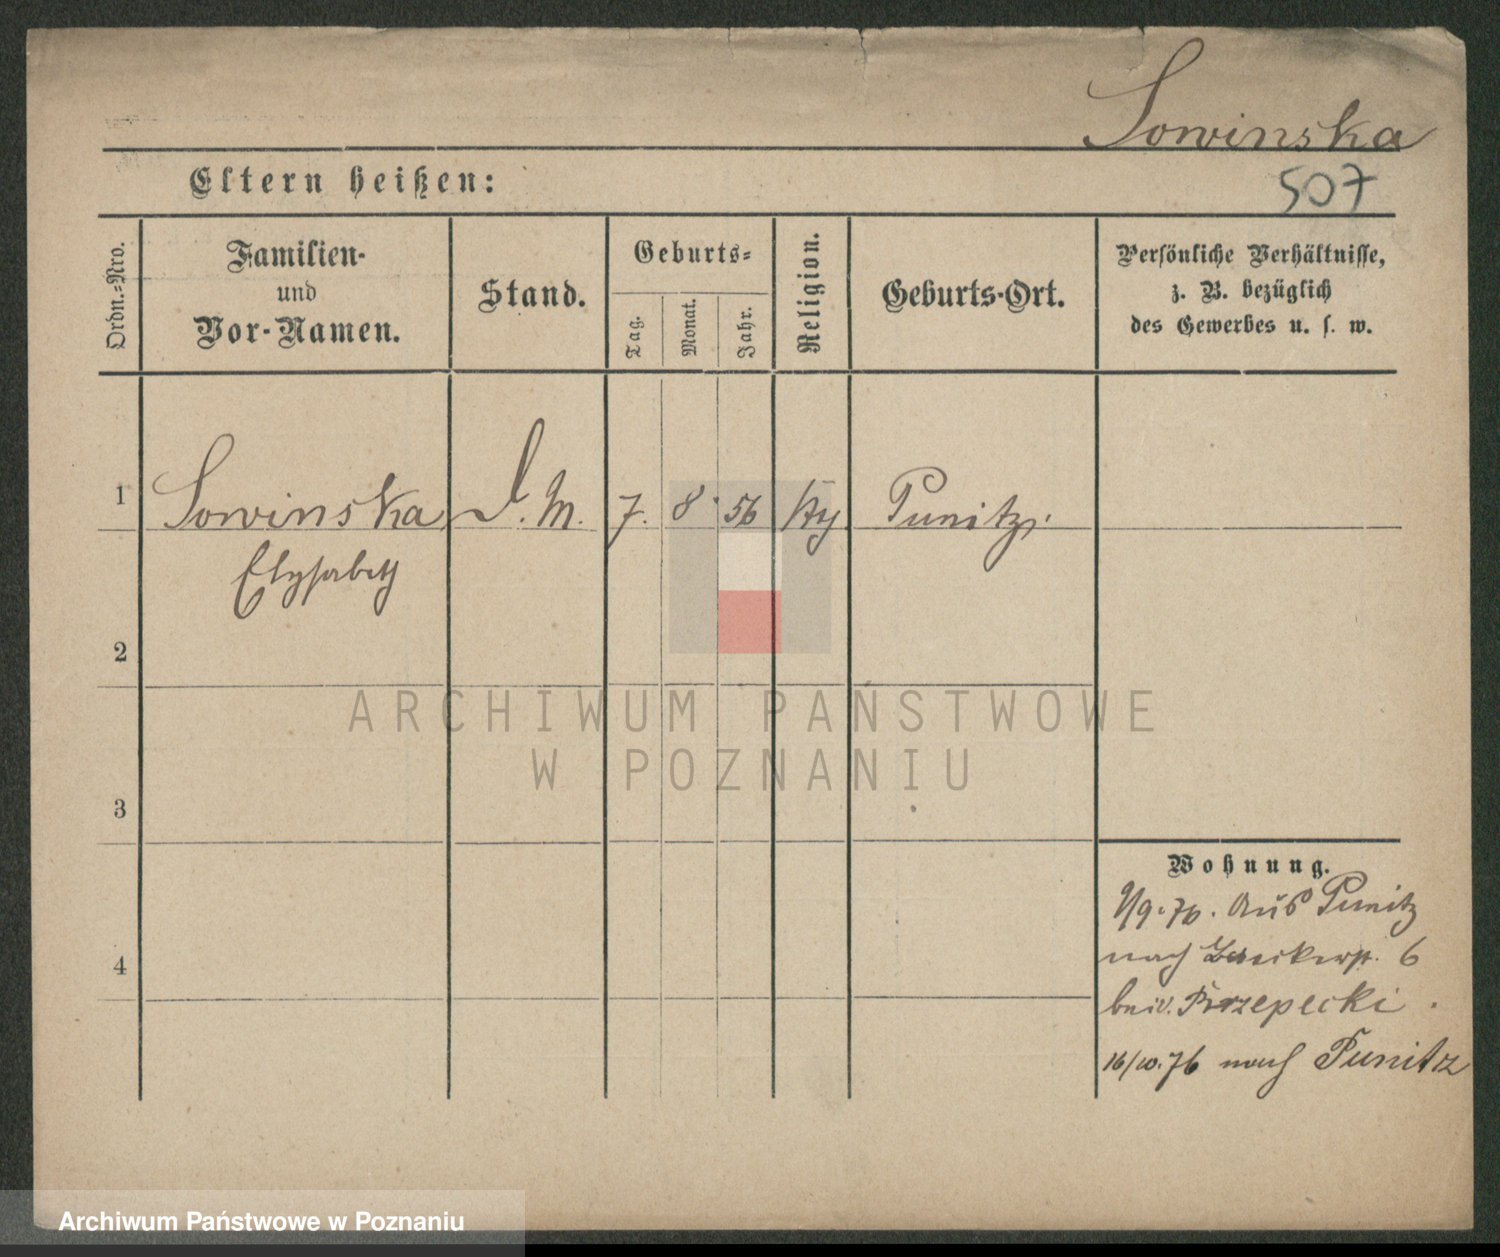 Sowinska
507
Eltern heißen:
Ordn.-Nro.
Familien-
und
Vor-Namen.
Stand.
Geburts-
Tag.
Monat.
Jahr.
Religion.
Geburts-Ort.
Persönliche Verhältnisse,
z. B. bezüglich
des Gewerbes u. s. w.
1
Sowinska D. M. 7. 8. 56 Punitz.
Elysabeth
2
ARCHIWUM PAŃSTWOWE
W POZNANIU
3
Wohnung.
9.76. aus Punitz
nach 6
4
Przepecki.
16/10.76 nach Punitz
Archiwum Państwowe w Poznaniu